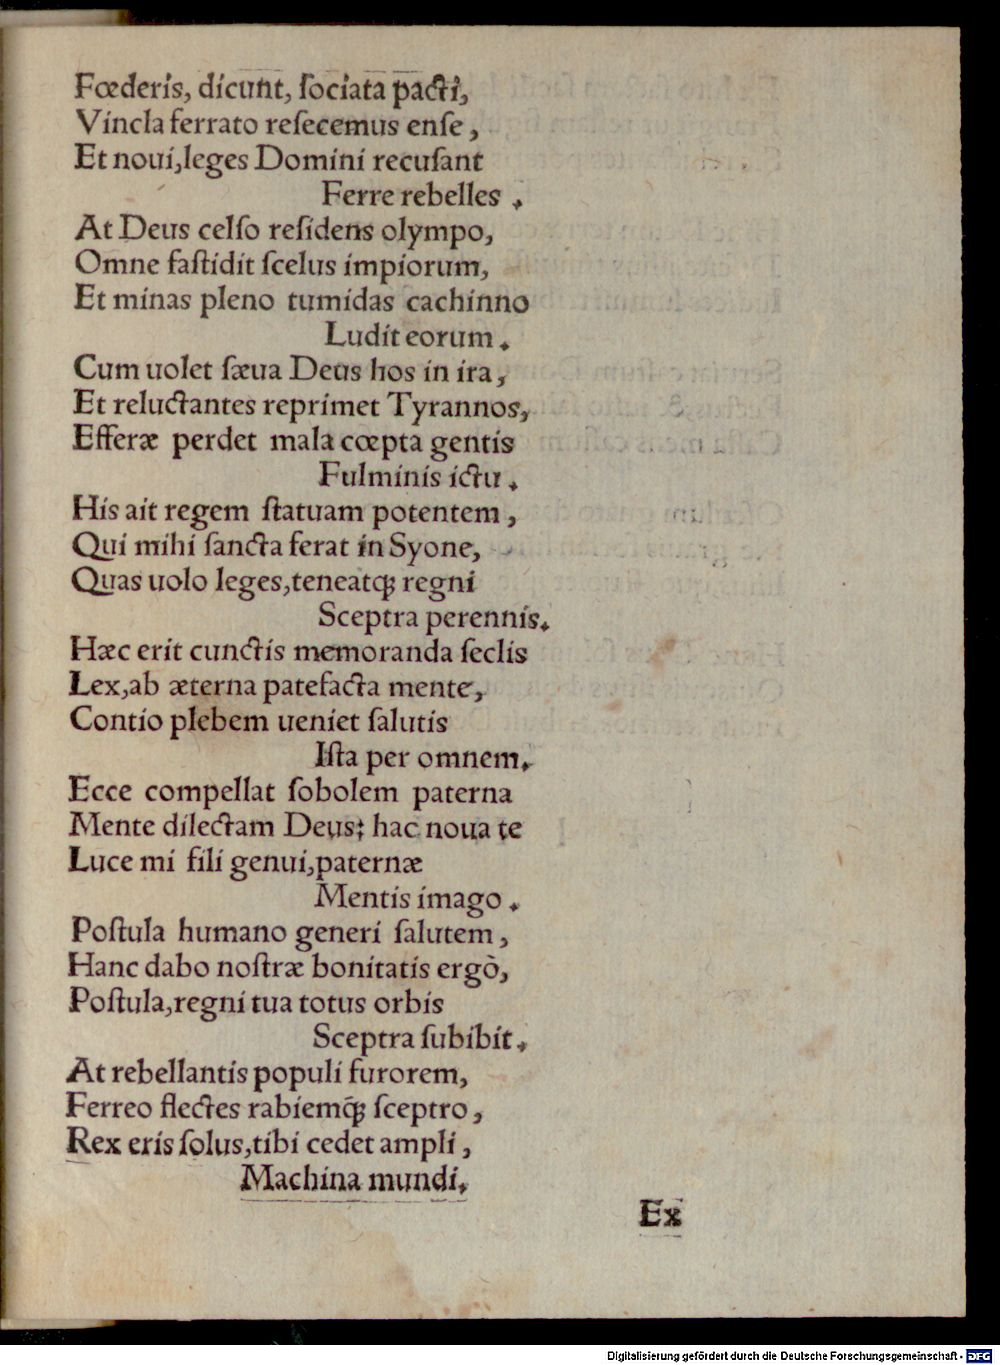 Fœderis, dicunt, ſociata pacti,
Vincla ferrato reſecemus enſe,
Et noui, leges Domini recuſant
Ferre rebelles.
At Deus celſo reſidens olympo,
Omne faſtidit ſcelus impiorum,
Et minas pleno tumidas cachinno
Ludit eorum.
Cum uolet ſæua Deus hos in ira,
Et reluctantes reprimet Tyrannos,
Efferæ perdet mala cœpta gentis
Fulminis ictu.
His ait regem ſtatuam potentem,
Qui mihi ſancta ferat in Syone,
Quas uolo leges, teneatꝗ regni
Sceptra perennis.
Hæc erit cunctis memoranda ſeclis
Lex, ab æterna patefacta mente,
Contio plebem ueniet ſalutis
Iſta per omnem.
Ecce compellat ſobolem paterna
Mente dilectam Deus: hac noua te
Luce mi fili genui, paternæ
Mentis imago.
Poſtula humano generi ſalutem,
Hanc dabo noſtræ bonitatis ergò,
Poſtula, regni tua totus orbis
Sceptra ſubibit.
At rebellantis populi furorem,
Ferreo flectes rabiemꝗ ſceptro,
Rex eris ſolus, tibi cedet ampli,
Machina mundi.
Ex
Digitalisierung gefördert durch die Deutsche Forschungsgemeinschaft - DFG